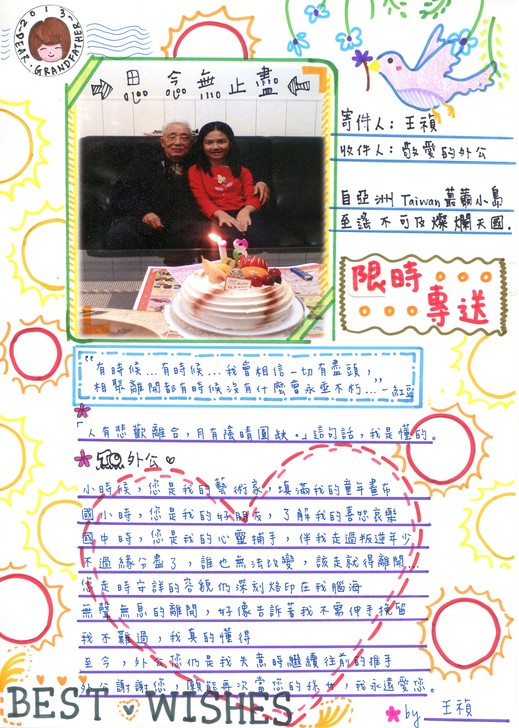 ·2013·DEAR·GRANDFATHER
思念無止盡
寄件人：王禎
收件人：敬愛的外公
自亞洲Taiwan蕞薾小島
至遙不可及燦爛天國.
限時
專送
“有時候…有時候…我會相信一切有盡頭，
相聚離開都有時候沒有什麼會永垂不朽…”-紅豆
「人有悲歡離合，月有陰晴圓缺。」這句話，我是懂的。
TO 外公
小時候，您是我的藝術家，填滿我的童年畫布
國小時，您是我的好朋友，了解我的喜怒哀樂
國中時，您是我的心靈捕手，伴我走過叛逆年少
不過緣分盡了，誰也無法改變，該走就得離開…
您走時安詳的容貌仍深刻烙印在我腦海
無聲無息的離開，好像告訴著我不需伸手挽留
我不難過，我真的懂得
至今，外公您仍是我失意時繼續往前的推手
外公謝謝您，願能再次當您的孫女，我永遠愛您。
BEST WISHES
by 王禎